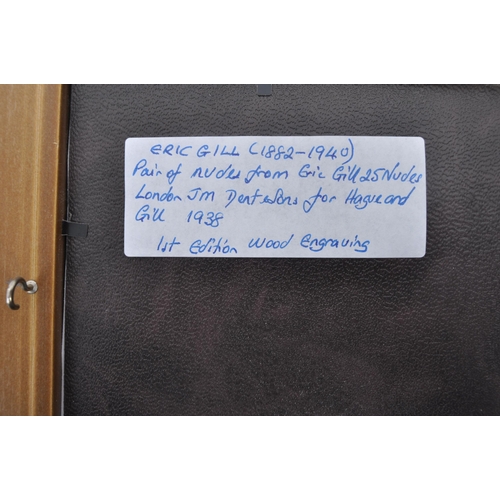 ERIC GILL (1882-1940)
Pair of nudes from Eric Gill 25 Nudes
London JM Dent & Sons for Hague and
Gill 1938
1st Edition Wood Engraving